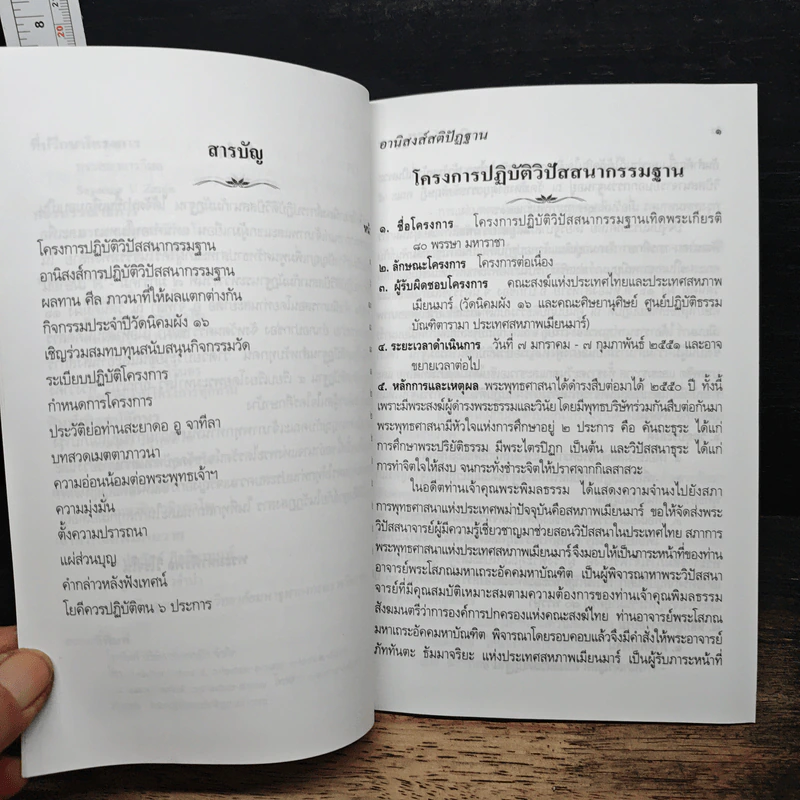 8
20
สารบัญ
โครงการปฏิบัติวิปัสสนากรรมฐาน
อานิสงส์การปฏิบัติวิปัสสนากรรมฐาน
ผลทาน ศีล ภาวนาที่ให้ผลแตกต่างกัน
กิจกรรมประจำปีวัดนิคมผัง ๑๖
เชิญร่วมสมทบทุนสนับสนุนกิจกรรมวัด
ระเบียบปฏิบัติโครงการ
กำหนดการโครงการ
ประวัติย่อท่านสะยาดอ อู จาทีลา
บทสวดเมตตาภาวนา
ความอ่อนน้อมต่อพระพุทธเจ้าฯ
ความมุ่งมั่น
ตั้งความปรารถนา
แผ่ส่วนบุญ
คำกล่าวหลังฟังเทศน์
โยคีควรปฏิบัติตน ๖ ประการ
อานิสงส์สติปัฏฐาน ๑
โครงการปฏิบัติวิปัสสนากรรมฐาน
๑. ชื่อโครงการ โครงการปฏิบัติวิปัสสนากรรมฐานเทิดพระเกียรติ
๘๐ พรรษา มหาราชา
๒. ลักษณะโครงการ โครงการต่อเนื่อง
๓. ผู้รับผิดชอบโครงการ คณะสงฆ์แห่งประเทศไทยและประเทศสหภาพ
เมียนมาร์ (วัดนิคมผัง ๑๖ และคณะศิษยานุศิษย์ ศูนย์ปฏิบัติธรรม
บัณฑิตารามา ประเทศสหภาพเมียนมาร์)
๔. ระยะเวลาดำเนินการ วันที่ ๗ มกราคม - ๗ กุมภาพันธ์ ๒๕๕๑ และอาจ
ขยายเวลาต่อไป
๕. หลักการและเหตุผล พระพุทธศาสนาได้ดำรงสืบต่อมาได้ ๒๕๕๐ ปี ทั้งนี้
เพราะมีพระสงฆ์ผู้ดำรงพระธรรมและวินัย โดยมีพุทธบริษัทร่วมกันสืบต่อกันมา
พระพุทธศาสนามีหัวใจแห่งการศึกษาอยู่ ๒ ประการ คือ คันถะธุระ ได้แก่
การศึกษาพระปริยัติธรรม มีพระไตรปิฎก เป็นต้น และวิปัสสนาธุระ ได้แก่
การทำจิตใจให้สงบ จนกระทั่งชำระจิตให้ปราศจากกิเลสาสวะ
ในอดีตท่านเจ้าคุณพระพิมลธรรม ได้แสดงความจำนงไปยังสภา
การพุทธศาสนาแห่งประเทศพม่าปัจจุบันคือสหภาพเมียนมาร์ ขอให้จัดส่งพระ
วิปัสสนาจารย์ผู้มีความรู้เชี่ยวชาญมาช่วยสอนวิปัสสนาในประเทศไทย สภาการ
พระพุทธศาสนาแห่งประเทศสหภาพเมียนมาร์จึงมอบให้เป็นภาระหน้าที่ของท่าน
อาจารย์พระโสภณมหาเถระอัคคมหาบัณฑิต เป็นผู้พิจารณาหาพระวิปัสสนา
จารย์ที่มีคุณสมบัติเหมาะสมตามความต้องการของท่านเจ้าคุณพิมลธรรม
สังฆมนตรีว่าการองค์การปกครองแห่งคณะสงฆ์ไทย ท่านอาจารย์พระโสภณ
มหาเถระอัคคมหาบัณฑิต พิจารณาโดยรอบคอบแล้วจึงมีคำสั่งให้พระอาจารย์
ภัททันตะ ธัมมาจริยะ แห่งประเทศสหภาพเมียนมาร์ เป็นผู้รับภาระหน้าที่